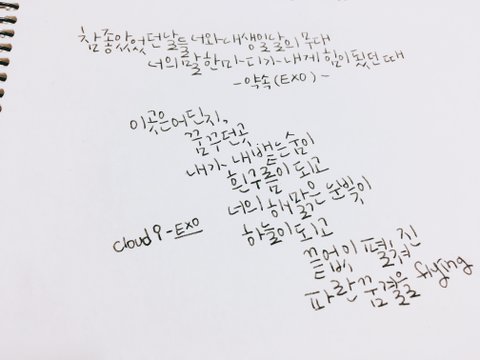 참 좋았었던 날들 너와 내 생일날의 무대
너의 말 한마디가 내게 힘이 됐던 때
- 약속 (EXO) -
이곳은 어딘지,
꿈꾸던 곳
내가 내뱉는 숨이
흰구름이 되고
너의 해맑은 눈빛이
하늘이 되고
cloud 9 - EXO
끝없이 펼쳐진
파란 꿈결을 flying